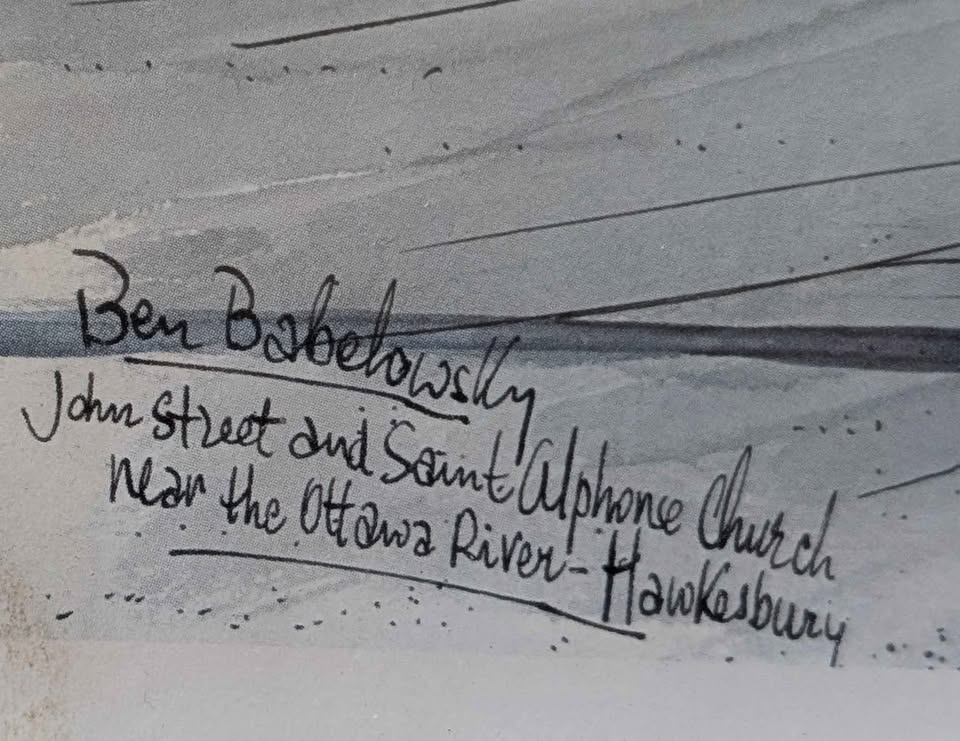 Ben Babelowsky
John Street and Saint Alphonse Church
near the Ottawa River - Hawkesbury